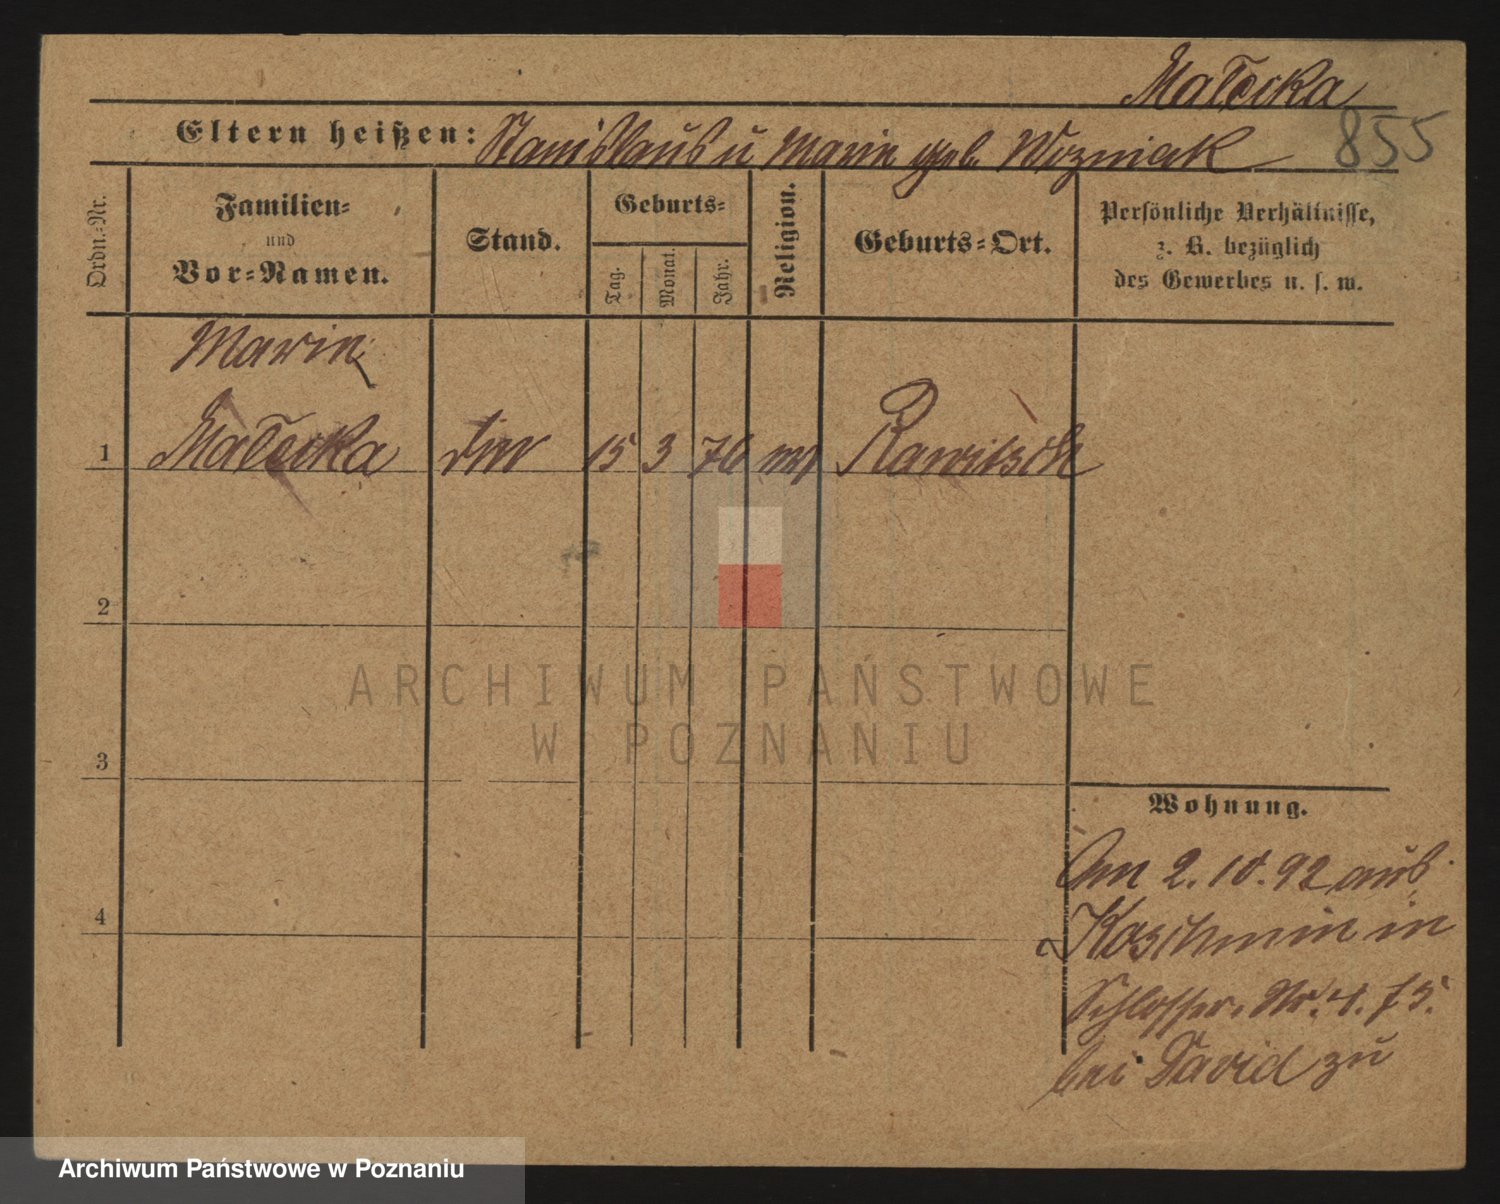 Małecka
855
Eltern heißen: Stanislaus u Marie geb. Wozniak
Ordn.-Nr.
Familien-
und
Vor-Namen.
Stand.
Geburts-
Tag.
Monat.
Jahr.
Religion.
Geburts-Ort.
Persönliche Verhältnisse,
z. B. bezüglich
des Gewerbes u. s. w.
Marie
1 Małecka 15 3 76 Rawitsch
2
3
4
Wohnung.
Am 2.10.92 aus
Koschmin in
Schlosser. Nr. 4.
bei David zu
ARCHIWUM PAŃSTWOWE
W POZNANIU
Archiwum Państwowe w Poznaniu